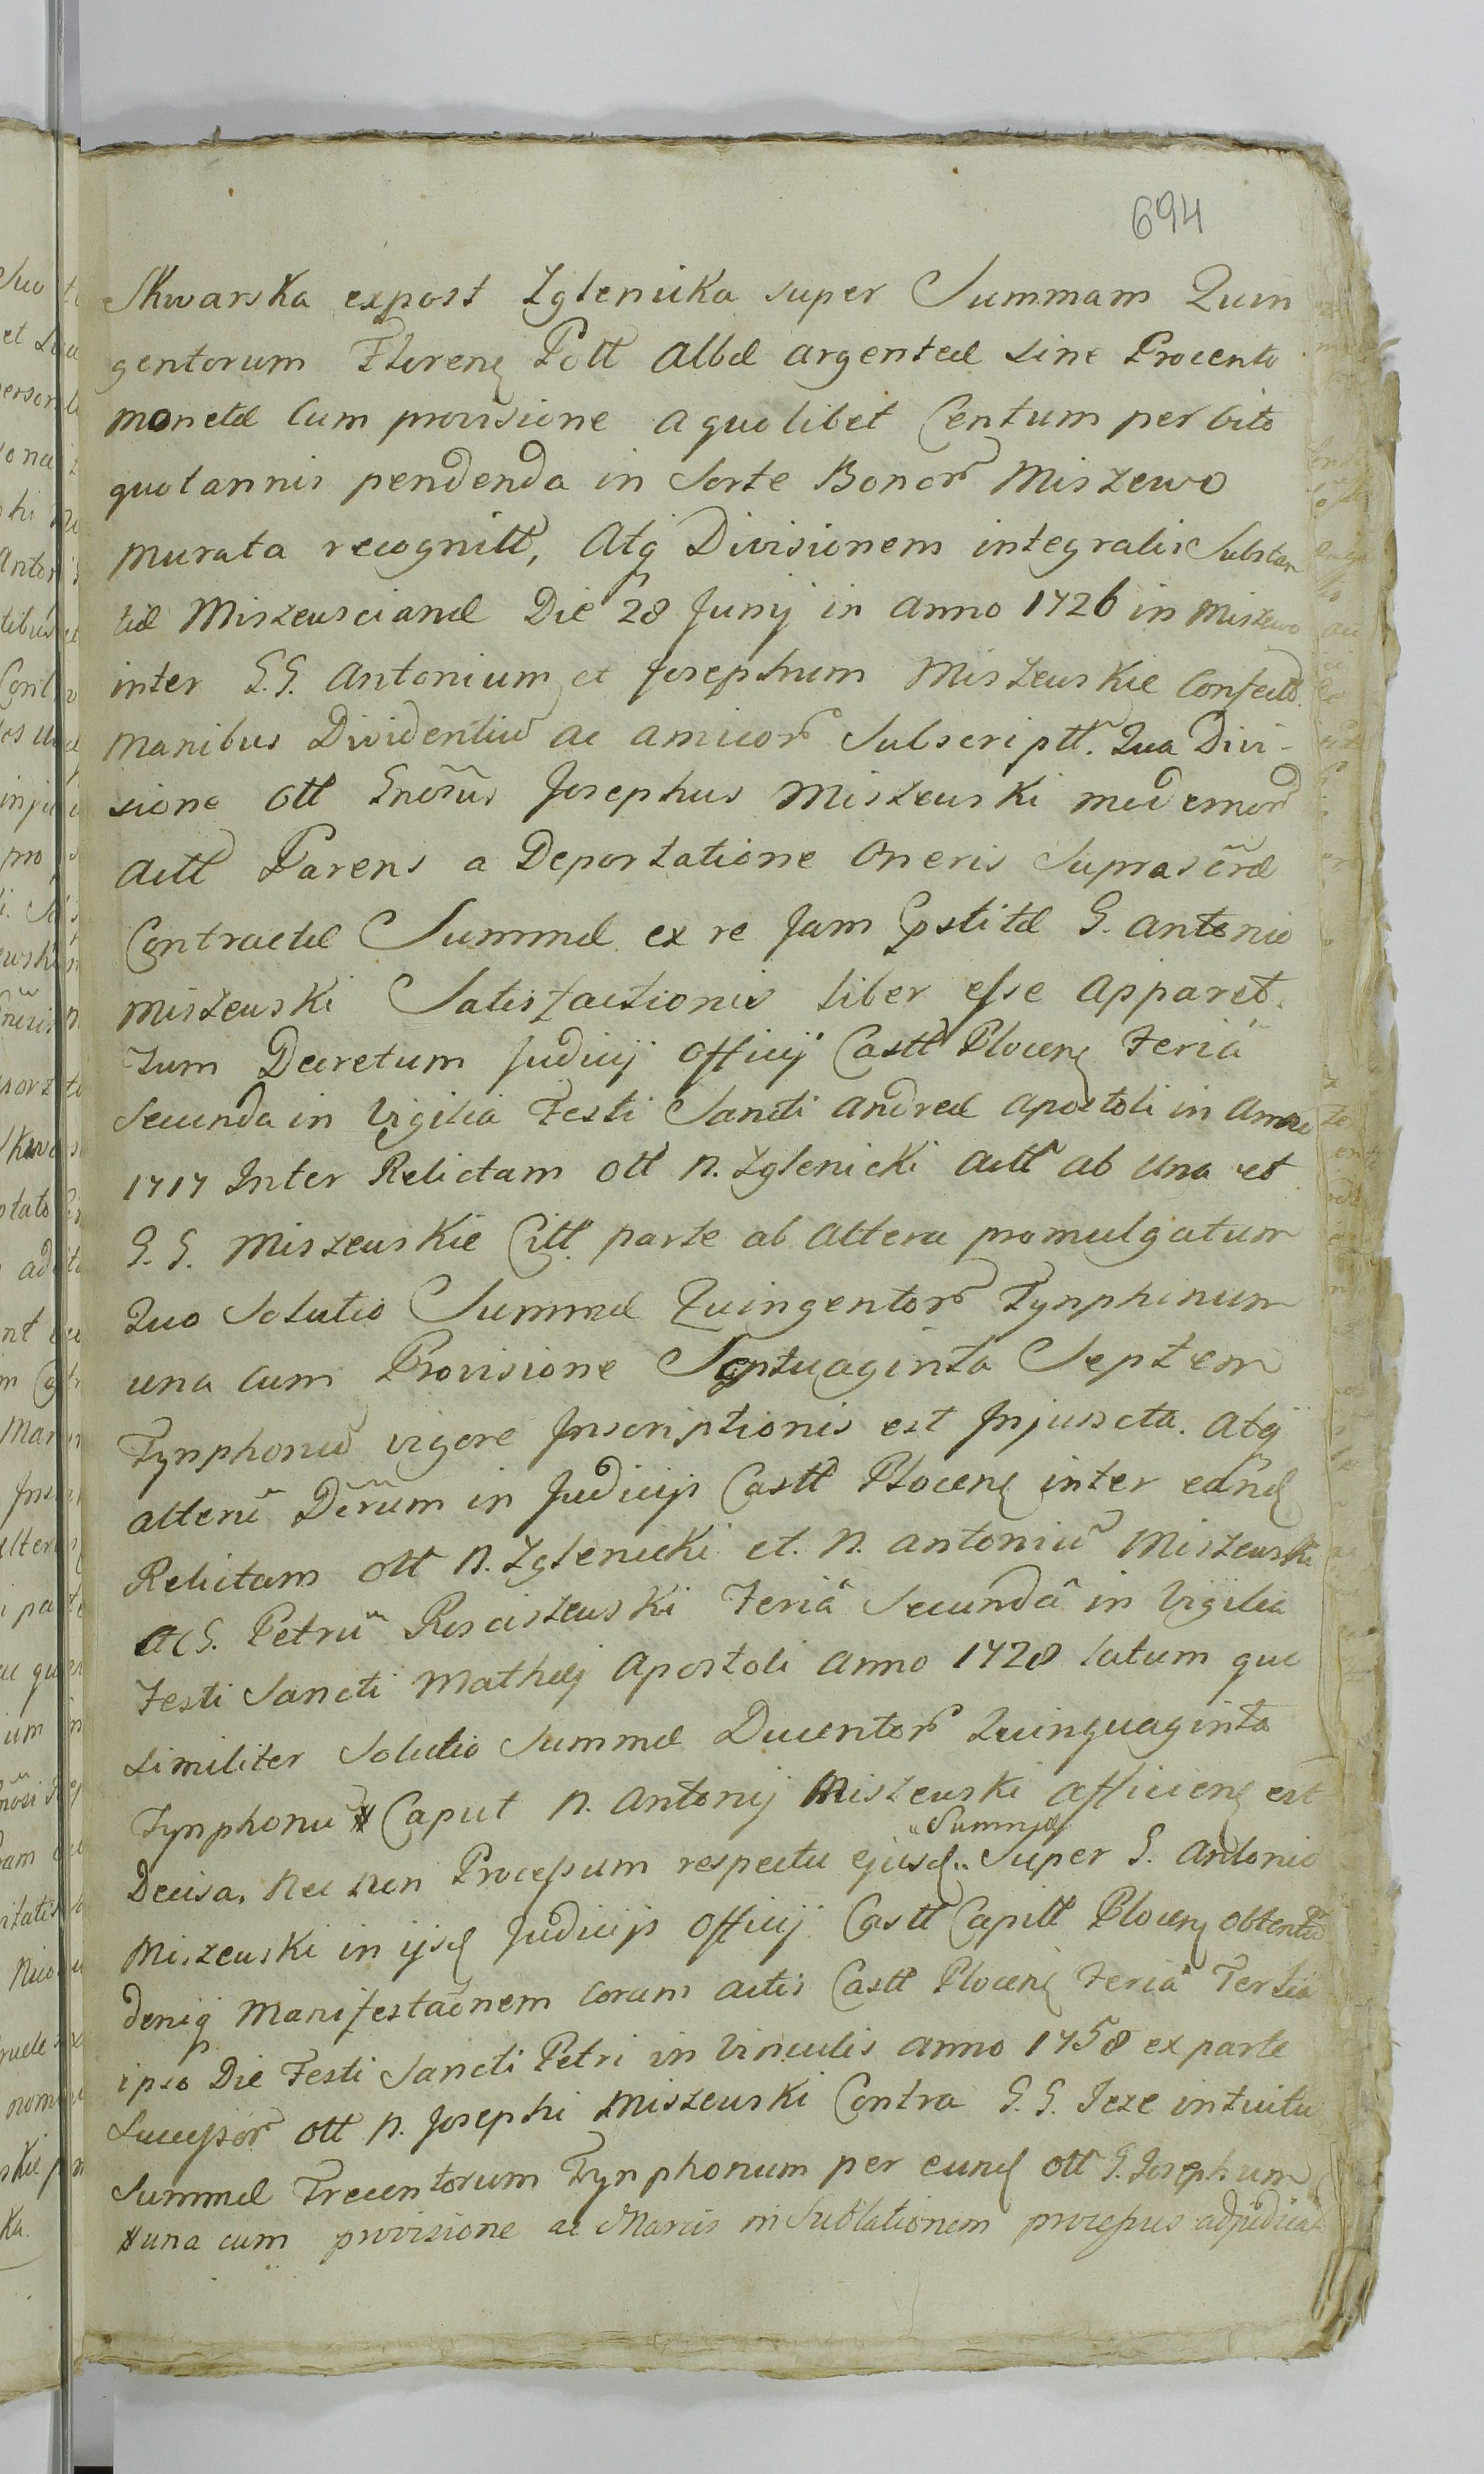 694
Skwarska expost Zglenicka super Summam Quin
gentorum Floren Poll albæ argenteæ sine Procento
monetæ Cum provisione a quolibet Centum per Octo
quotannis pendenda in Sorte Bonor Miszewo
murata recognitt, Atq Divisionem integralis Substan
tiæ Miszeusciane Die 28 Junij in Anno 1726 in Miszewo
inter G.G. Antonium et Josephum Miszeuskie Confectt.
Manibus Dividentiū ac amicor Subscriptt. Qua Divi-
sione Ott Gnōsus Josephus Miszeuski modernor
Actt Parens a Deportatione Oneris Suprascrõæ
Contractæ Summæ ex re Jam Præstitæ G. Antonio
Miszeuski Satisfactionis liber esse apparet.
Tum Decretum Judicij Officij Castt Plocen Feriâ
Secunda in Vigilia Festi Sancti Andreæ Apostoli in Anno
1717 Inter Relictam Ott N. Zglenicki Actt ab Una et
G. G. Miszeuskie Citt. parte ab altera promulgatum
Quo Solutio Summæ Quingentor Tynphinum
una cum Provisione Septuaginta Septem
Tynphonū vigore Inscriptionis est Injuncta. Atq
alterū Dčrũm in Judicijs Castt Plocen inter eand
Relictam Ott N. Zglenicki et. N. Antoniū Miszeuski
ac G. Petrū Rosciszeuski Feriâ Secundâ in Vigilia
Festi Sancti Mathæj Apostoli Anno 1728 latum quo
similiter Solutio Summæ Ducentor Quinquaginta
Tynphonū # Caput N. Antonij Miszeuski afficien est
Decisa, Nec non Processum respectu ejusd „Summæ„ Super G. Antonio
Miszeuski in ijsd Judicijs Officij Castt Capitt Plocen obtentū
deniq Manifestaõnem coram actis Castt Plocen Feriâ Tertia
ipso Die Festi Sancti Petri in Vinculis anno 1758 ex parte
Successor Ott N. Josephi Miszeuski Contra G. G. Jeze intuitu
Summæ Trecentorum Tynphonum per eund Ott G. Josephum
# una cum provisione ac Marcis in Sublationem processus adjudicat